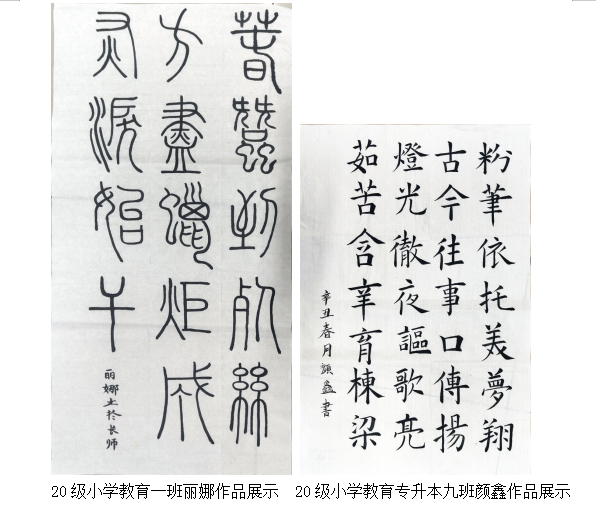 春蠶到死絲
方盡蠟炬成
灰淚始干
丽娜书於长师
粉筆依托美夢翔
古今往事口傳揚
燈光徹夜謳歌亮
茹苦含辛育棟梁
辛丑春月顏鑫書
20级小学教育一班丽娜作品展示
20级小学教育专升本九班颜鑫作品展示